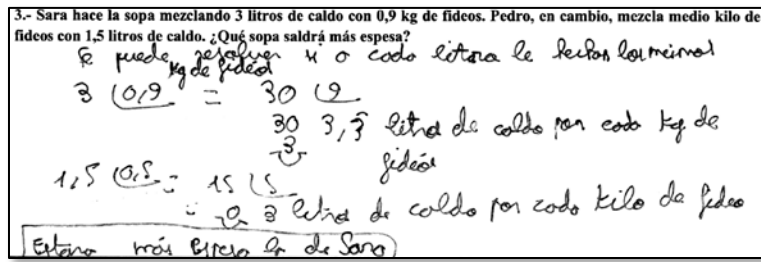 3.- Sara hace la sopa mezclando 3 litros de caldo con 0,9 kg de fideos. Pedro, en cambio, mezcla medio kilo de
fideos con 1,5 litros de caldo. ¿Qué sopa saldrá más espesa?
Se puede resolver a cada le
kg de fideos
3 0,9 = 30 9
30 3,3 litros de caldo por cada kg de
3 fideos
1,5 0,5 = 15 5
= 0 3 litros de caldo por cada kilo de fideo
Estara más espesa la de Sara